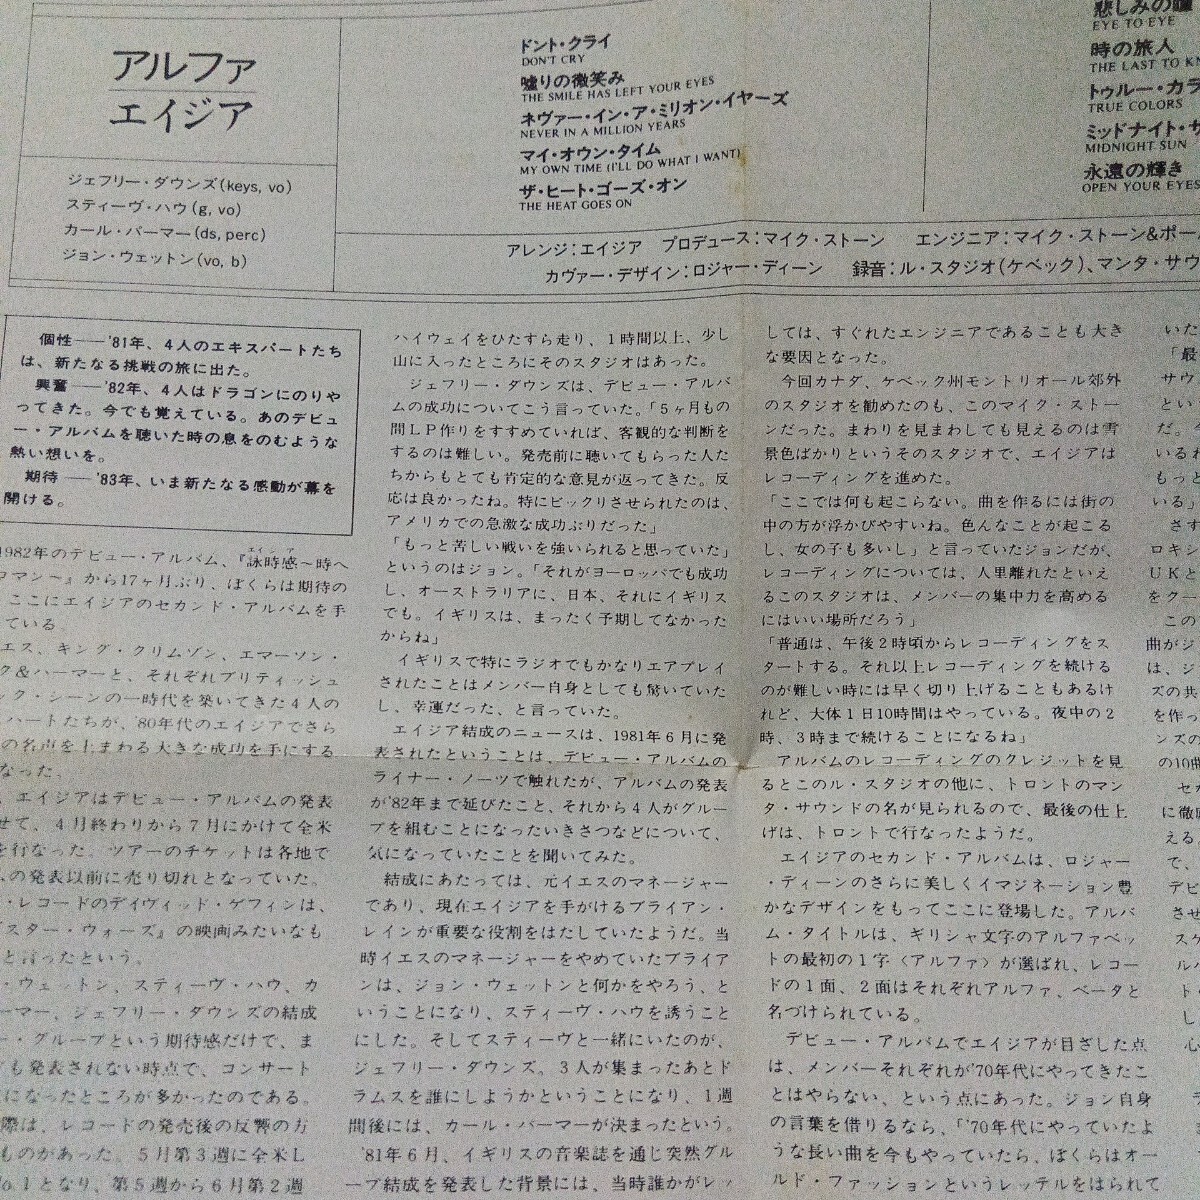 アルファ
エイジア
ジェフリー・ダウンズ(keys, vo)
スティーヴ・ハウ(g, vo)
カール・パーマー(ds, perc)
ジョン・ウェットン(vo, b)
ドント・クライ
DON'T CRY
嘘りの微笑み
THE SMILE HAS LEFT YOUR EYES
ネヴァー・イン・ア・ミリオン・イヤーズ
NEVER IN A MILLION YEARS
マイ・オウン・タイム
MY OWN TIME (I'LL DO WHAT I WANT)
ザ・ヒート・ゴーズ・オン
THE HEAT GOES ON
悲しみの瞳
EYE TO EYE
時の旅人
THE LAST TO KN
トゥルー・カラ
TRUE COLORS
ミッドナイト・サ
MIDNIGHT SUN
永遠の輝き
OPEN YOUR EYES
アレンジ：エイジア　プロデュース：マイク・ストーン　エンジニア：マイク・ストーン&ポー
カヴァー・デザイン：ロジャー・ディーン　録音：ル・スタジオ(ケベック)、マンタ・サウ
個性──'81年、4人のエキスパートたち
は、新たなる挑戦の旅に出た。
興奮──'82年、4人はドラゴンにのりや
ってきた。今でも覚えている。あのデビュ
ー・アルバムを聴いた時の息をのむような
熱い想いを。
期待──'83年、いま新たなる感動が幕を
開ける。
1982年のデビュー・アルバム、『詠時感～時へ
ロマン～』から17ヶ月ぶり、ぼくらは期待の
ここにエイジアのセカンド・アルバムを手
ている。
エス、キング・クリムゾン、エマーソン・
ク&パーマーと、それぞれブリティッシュ
ック・シーンの一時代を築いてきた4人の
ハートたちが、'80年代のエイジアでさら
の名声を上まわる大きな成功を手にする
なった。
、エイジアはデビュー・アルバムの発表
せて、4月終わりから7月にかけて全米
を行なった。ツアーのチケットは各地で
の発表以前に売り切れとなっていた。
・レコードのデイヴィッド・ゲフィンは、
『スター・ウォーズ』の映画みたいなも
と言ったという。
・ウェットン、スティーヴ・ハウ、カ
ーマー、ジェフリー・ダウンズの結成
ー・グループという期待感だけで、ま
も発表されない時点で、コンサート
になったところが多かったのである。
際は、レコードの発売後の反響の方
ものがあった。5月第3週に全米L
No.1となり、第5週から6月第2週
ハイウェイをひたすら走り、1時間以上、少し
山に入ったところにそのスタジオはあった。
ジェフリー・ダウンズは、デビュー・アルバ
ムの成功についてこう言っていた。「5ヶ月もの
間LP作りをすすめていれば、客観的な判断を
するのは難しい。発売前に聴いてもらった人た
ちからもとても肯定的な意見が返ってきた。反
応は良かったね。特にビックリさせられたのは、
アメリカでの急激な成功ぶりだった」
「もっと苦しい戦いを強いられると思っていた」
というのはジョン。「それがヨーロッパでも成功
し、オーストラリアに、日本、それにイギリス
でも。イギリスは、まったく予期してなかった
からね」
イギリスで特にラジオでもかなりエアプレイ
されたことはメンバー自身としても驚いていた
し、幸運だった、と言っていた。
エイジア結成のニュースは、1981年6月に発
表されたということは、デビュー・アルバムの
ライナー・ノーツで触れたが、アルバムの発表
が'82年まで延びたこと、それから4人がグルー
プを組むことになったいきさつなどについて、
気になっていたことを聞いてみた。
結成にあたっては、元イエスのマネージャー
であり、現在エイジアを手がけるブライアン・
レインが重要な役割をはたしていたようだ。当
時イエスのマネージャーをやめていたブライア
ンは、ジョン・ウェットンと何かをやろう、と
いうことになり、スティーヴ・ハウを誘うこと
にした。そしてスティーヴと一緒にいたのが、
ジェフリー・ダウンズ。3人が集まったあとド
ラムスを誰にしようかということになり、1週
間後には、カール・パーマーが決まったという。
'81年6月、イギリスの音楽誌を通じ突然グル
ープ結成を発表した背景には、当時誰かがレッ
しては、すぐれたエンジニアであることも大き
な要因となった。
今回カナダ、ケベック州モントリオール郊外
のスタジオを勧めたのも、このマイク・ストー
ンだった。まわりを見まわしても見えるのは雪
景色ばかりというそのスタジオで、エイジアは
レコーディングを進めた。
「ここでは何も起こらない。曲を作るには街の
中の方が浮かびやすいね。色んなことが起こる
し、女の子も多いし」と言っていたジョンだが、
レコーディングについては、人里離れたといえ
るこのスタジオは、メンバーの集中力を高める
にはいい場所だろう」
「普通は、午後2時頃からレコーディングをス
タートする。それ以上レコーディングを続ける
のが難しい時には早く切り上げることもあるけ
れど、大体1日10時間はやっている。夜中の2
時、3時まで続けることになるね」
アルバムのレコーディングのクレジットを見
るとこのル・スタジオの他に、トロントのマン
タ・サウンドの名が見られるので、最後の仕上
げは、トロントで行なったようだ。
エイジアのセカンド・アルバムは、ロジャー
・ディーンのさらに美しくイマジネーション豊
かなデザインをもってここに登場した。アルバ
ム・タイトルは、ギリシャ文字のアルファベッ
トの最初の1字〈アルファ〉が選ばれ、レコー
ドの1面、2面はそれぞれアルファ、ベータと
名づけられている。
デビュー・アルバムでエイジアが目ざした点
は、メンバーそれぞれが'70年代にやってきたこ
とはやらない、という点にあった。ジョン自身
の言葉を借りるなら、「'70年代にやっていたよ
うな長い曲を今もやっていたら、ぼくらはオー
ルド・ファッションというレッテルをはられて
いた
「最
サウ
とい
だ。今
いるれ
もっと
いる」
さす
ロキシ
UKと
をクー
この
曲がジ
は、ジ
ズの共
を作っ
ンズの
の10曲
セカ
に徹底
える。
で、
デビ
させ
スケ
ルバ
ト・
し
心
ラ